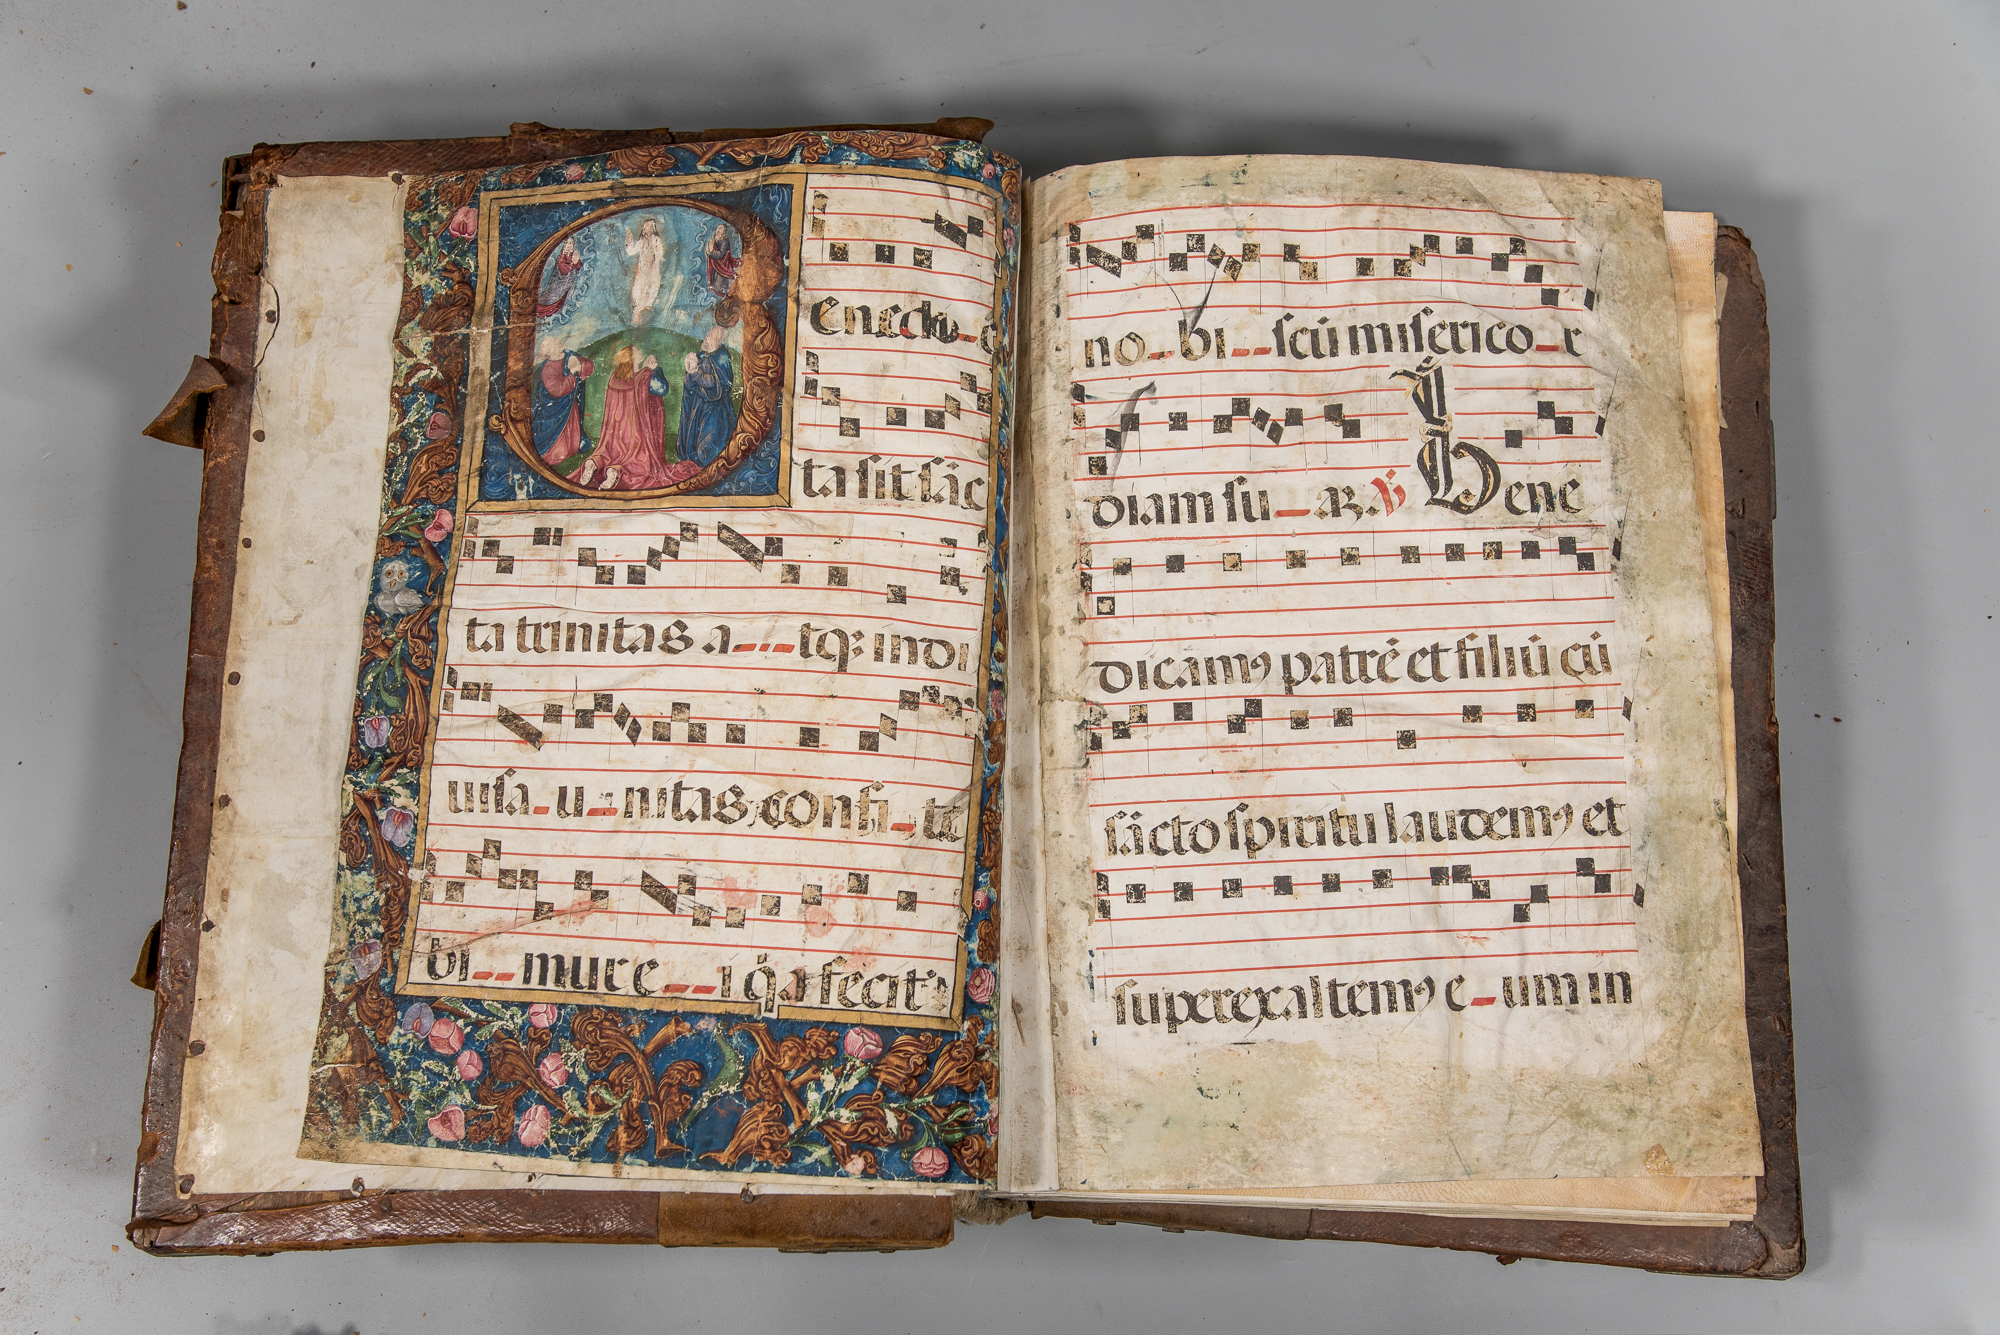 Benedic
ta sit sāc
ta trinitas a---tqꝫ indi
uisa-u-nitas, confi-te
bi--mur e--i q̄a fecit
no-bi--scū misericor
diam su-aꝫ. ℣ Bene
dicamꝰ patrē et filiū cū
sācto spiritu laudemꝰ et
superexaltemꝰ e-um in